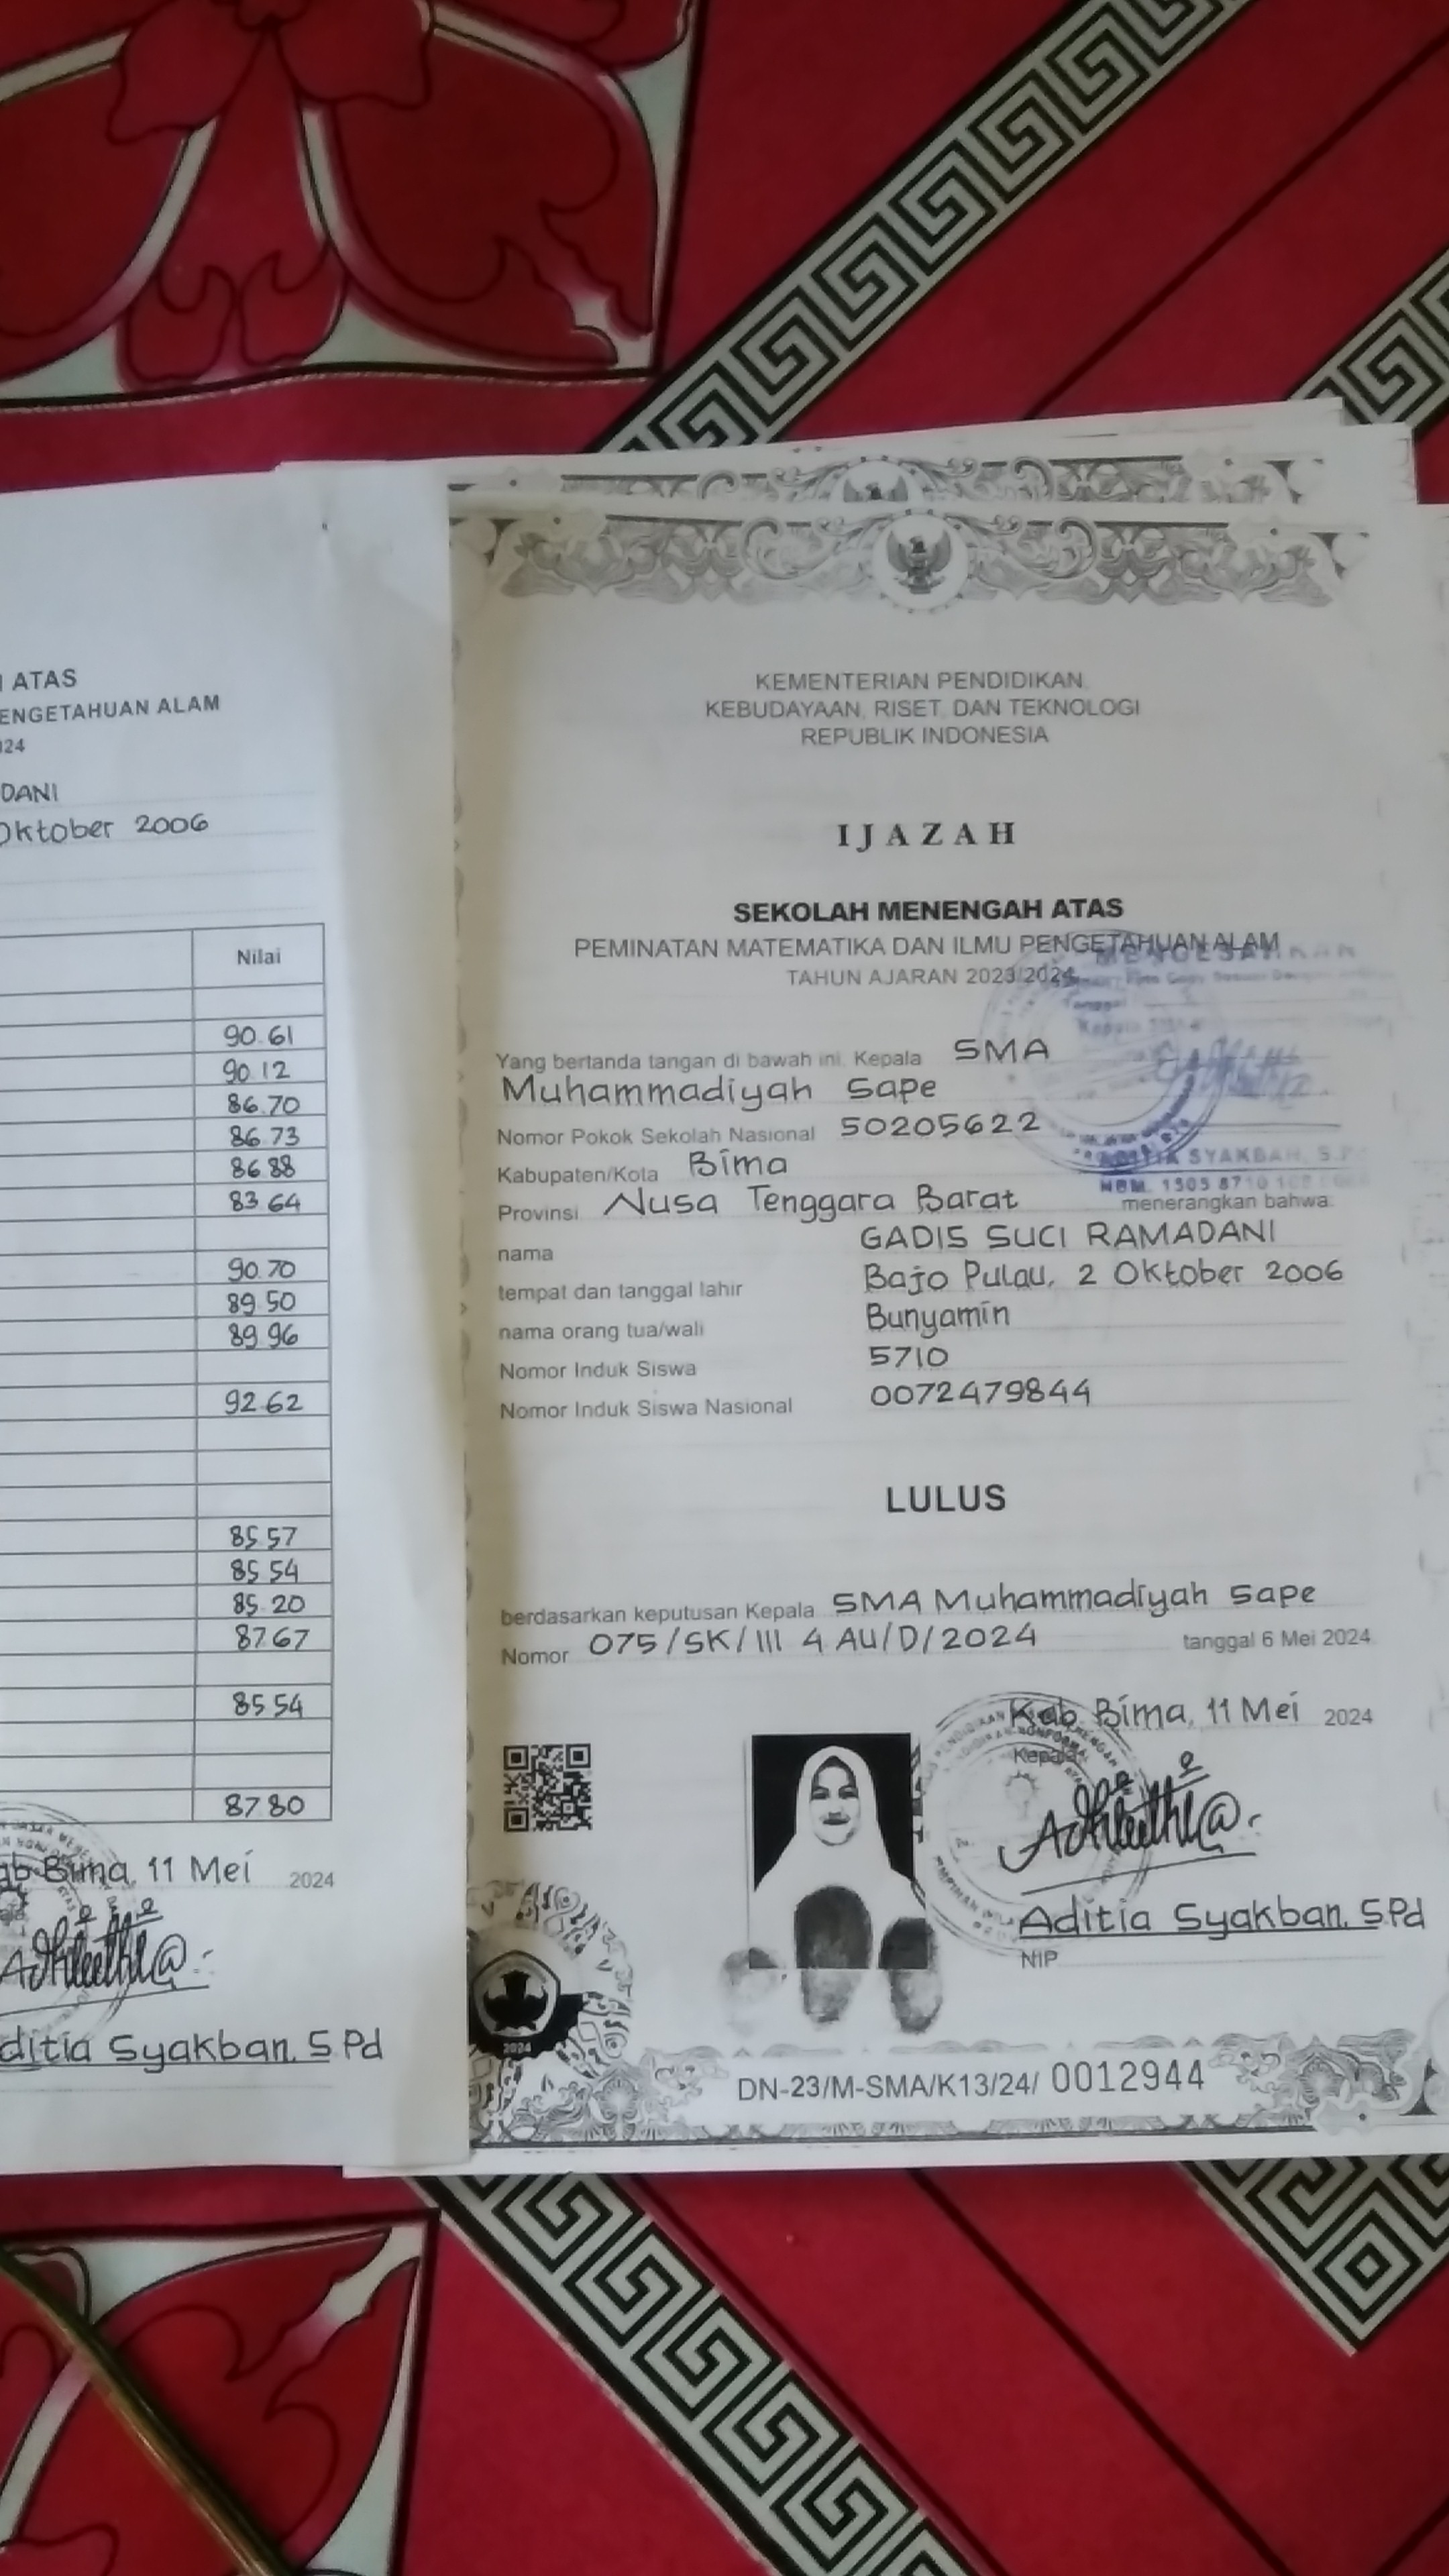 ATAS
ENGETAHUAN ALAM
024
DANI
Oktober 2006
Nilai
90.61
90.12
86.70
86.73
86.88
83.64
90.70
89.50
89.96
92.62
85.57
85.54
85.20
87.67
85.54
87.80
ab Bima, 11 Mei 2024
ditia Syakban, S.Pd
KEMENTERIAN PENDIDIKAN,
KEBUDAYAAN, RISET, DAN TEKNOLOGI
REPUBLIK INDONESIA
IJAZAH
SEKOLAH MENENGAH ATAS
PEMINATAN MATEMATIKA DAN ILMU PENGETAHUAN ALAM
TAHUN AJARAN 2023/2024
Yang bertanda tangan di bawah ini, Kepala SMA
Muhammadiyah Sape
Nomor Pokok Sekolah Nasional 50205622
Kabupaten/Kota Bima
SYAKBAH, S.P
NBM. 1305 8710
Provinsi Nusa Tenggara Barat menerangkan bahwa:
nama GADIS SUCI RAMADANI
tempat dan tanggal lahir Bajo Pulau, 2 Oktober 2006
nama orang tua/wali Bunyamin
Nomor Induk Siswa 5710
Nomor Induk Siswa Nasional 0072479844
LULUS
berdasarkan keputusan Kepala SMA Muhammadiyah Sape
Nomor 075/SK/III 4 AU/D/2024 tanggal 6 Mei 2024
Kab Bima, 11 Mei 2024
Kepala
Aditia Syakban, S.Pd
NIP
2024
DN-23/M-SMA/K13/24/ 0012944